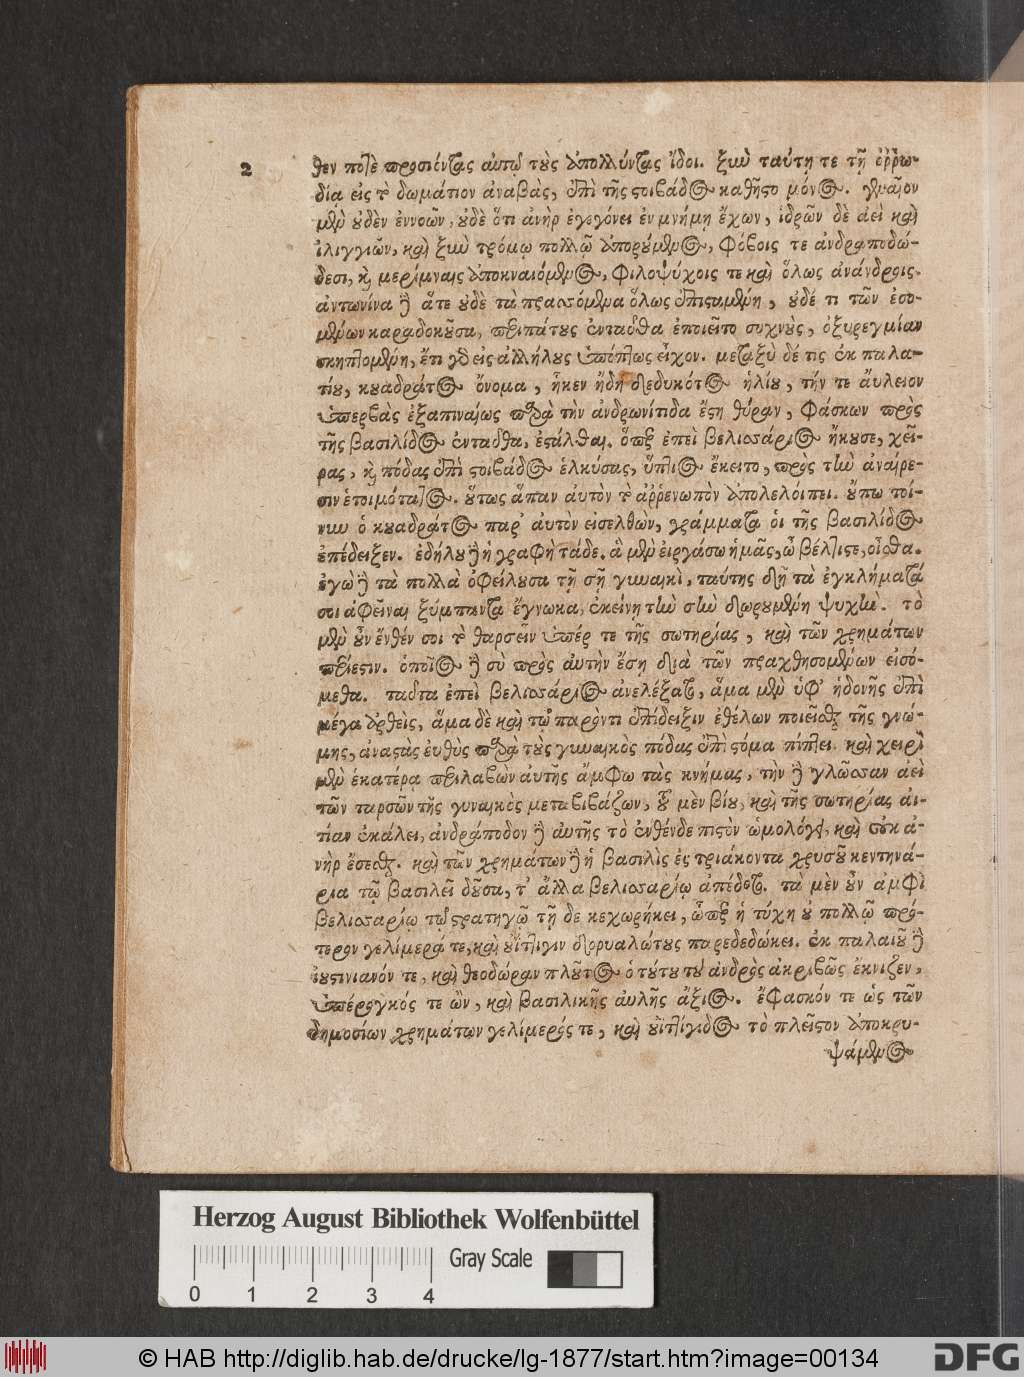 2 θεν ποτὲ προσιόντας αὐτῷ τοὺς ἀπολλύντας ἴδοι. ξὺν ταύτῃ τε τῇ ὀῤῥω-
δίᾳ εἰς τὸ δωμάτιον ἀναβὰς, ἐπὶ τῆς στιβάδος καθῆστο μόνος. γενναῖον
μὲν οὐδὲν ἐννοῶν, οὐδὲ ὅτι ἀνὴρ ἐγεγόνει ἐν μνήμῃ ἔχων, ἱδρῶν δὲ ἀεὶ καὶ
ἰλιγγιῶν, καὶ ξὺν τρόμῳ πολλῷ ἀπορούμενος, φόβοις τε ἀνδραποδώ-
δεσι, καὶ μερίμναις ἀποκναιόμενος, φιλοψύχοις τε καὶ ὅλως ἀνάνδροις.
ἀντωνίνα δὲ ἅτε οὐδὲ τὰ πρασσόμενα ὅλως ἐπισταμένη, οὐδέ τι τῶν ἐσο-
μένων καραδοκοῦσα, περιπάτους ἐνταῦθα ἐποιεῖτο συχνοὺς, ὀξυρεγμίαν
σκηπτομένη, ἔτι γὰρ εἰς ἀλλήλους ὑπόπτως εἶχον. μεταξὺ δέ τις ἐκ παλα-
τίου, κουαδράτος ὄνομα, ἧκεν ἤδη δεδυκότος ἡλίου, τήν τε ἄυλειον
ὑπερβὰς ἐξαπιναίως παρὰ τὴν ἀνδρωνίτιδα ἔστη θύραν, φάσκων πρὸς
τῆς βασιλίδος ἐνταῦθα, ἐστάλθαι. ὅπερ ἐπεὶ βελισσάριος ἤκουσε, χεῖ-
ρας, καὶ πόδας ἐπὶ στιβάδος ἑλκύσας, ὕπτιος ἔκειτο, πρὸς τὴν ἀναίρε-
σιν ἑτοιμότατος. οὕτως ἅπαν αὐτὸν τὸ ἀῤῥενωπὸν ἀπολελοίπει. οὔπω τοί-
νυν ὁ κουαδράτος παρ' αὐτὸν εἰσελθὼν, γράμματα οἱ τῆς βασιλίδος
ἐπέδειξεν. ἐδήλου δὲ ἡ γραφὴ τάδε. ἃ μὲν εἰργάσω ἡμᾶς, ὦ βέλτιστε, οἶσθα.
ἐγὼ δὲ τὰ πολλὰ ὀφείλουσα τῇ σῇ γυναικὶ, ταύτης δὴ τὰ ἐγκλήματά
σοι ἀφεῖναι ξύμπαντα ἔγνωκα, ἐκείνῃ τὴν σὴν δωρουμένη ψυχήν. τὸ
μὲν οὖν ἔνθέν σοι τὸ θαρσεῖν ὑπέρ τε τῆς σωτηρίας, καὶ τῶν χρημάτων
περίεστιν. ὁποῖος δὲ σὺ πρὸς αὐτὴν ἔσῃ διὰ τῶν πραχθησομένων εἰσό-
μεθα. ταῦτα ἐπεὶ βελισσάριος ἀνελέξατο, ἅμα μὲν ὑφ' ἡδονῆς ἐπὶ
μέγα ἀρθεὶς, ἅμα δὲ καὶ τῷ παρόντι ἐπίδειξιν ἐθέλων ποιεῖσθαι τῆς γνώ-
μης, ἀναστὰς εὐθὺς παρὰ τοὺς γυναικὸς πόδας ἐπὶ στόμα πίπτει. καὶ χειρὶ
μὲν ἑκατέρᾳ περιλαβὼν αὐτῆς ἄμφω τὰς κνήμας, τὴν δὲ γλῶσσαν ἀεὶ
τῶν ταρσῶν τῆς γυναικὸς μεταβιβάζων, τοῦ μὲν βίου, καὶ τῆς σωτηρίας αἰ-
τίαν ἐκάλει, ἀνδράποδον δὲ αὐτῆς τὸ ἐνθένδε πιστὸν ὡμολόγει, καὶ οὐκ ἀ-
νὴρ ἔσεσθαι. καὶ τῶν χρημάτων δὲ ἡ βασιλὶς ἐς τριάκοντα χρυσοῦ κεντηνά-
ρια τῷ βασιλεῖ δοῦσα, τ' ἄλλα βελισσαρίῳ ἀπέδοτο. τὰ μὲν οὖν ἀμφὶ
βελισσαρίῳ τῷ στρατηγῷ τῇ δε κεχωρήκει, ᾧπερ ἡ τύχη οὐ πολλῷ πρό-
τερον γελίμερά τε, καὶ οὐίττιγιν δορυαλώτους παρεδεδώκει. ἐκ παλαιοῦ δὲ
ἰουστινιανόν τε, καὶ θεοδώραν πλοῦτος ὁ τούτου τοῦ ἀνδρὸς ἀκριβῶς ἔκνιζεν,
ὑπέρογκός τε ὢν, καὶ βασιλικῆς αὐλῆς ἄξιος. ἔφασκόν τε ὡς τῶν
δημοσίων χρημάτων γελίμερός τε, καὶ οὐιττίγιδος τὸ πλεῖστον ἀποκρυ-
ψάμενος
Herzog August Bibliothek Wolfenbüttel
Gray Scale
0 1 2 3 4
© HAB http://diglib.hab.de/drucke/lg-1877/start.htm?image=00134
DFG